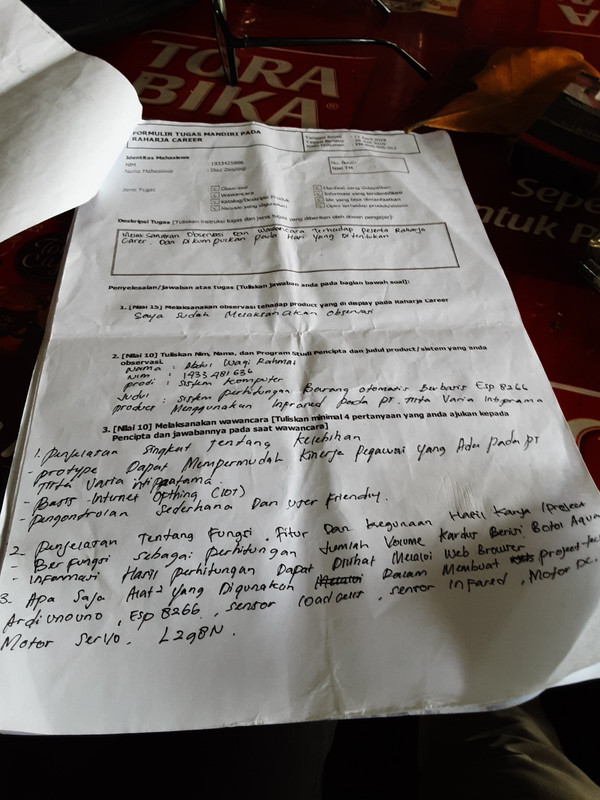 TORA
BIKA®
Sepe
ntuk P
FORMULIR TUGAS MANDIRI PADA
RAHARJA CAREER
Identitas Mahasiswa
NIM
Nama Mahasiswa
Jenis Tugas
Observasi
Wawancara
Katalog/Deskripsi Produk
Metode yang digunakan
Manfaat yang didapatkan
Informasi yang teridentifikasi
Ide yang bisa dimanfaatkan
Opini terhadap produk/sistem
Deskripsi Tugas [Tuliskan instruksi tugas dan jenis tugas yang diberikan oleh dosen pengajar]:
Melaksanakan Observasi Dan Wawancara Terhadap Peserta Raharja
Career. Dan Dikumpulkan pada Hari yang Ditentukan
Penyelesaian/jawaban atas tugas [Tuliskan jawaban anda pada bagian bawah soal]:
1. [Nilai 15] Melaksanakan observasi tehadap product yang di display pada Raharja Career
Saya Sudah Melaksanakan Observasi
2. [Nilai 10] Tuliskan Nim, Nama, dan Program Studi Pencipta dan judul product/sistem yang anda
observasi.
Nama : Abdul Waqi Rahmai
Nim : 1933481636
prodi : Sistem Komputer
Judul : Sistem perhitungan Barang otomatis Berbasis Esp 8266
product Menggunakan Infrared pada PT. Tirta Varia Intiprama
3. [Nilai 10] Melaksanakan wawancara [Tuliskan minimal 4 pertanyaan yang anda ajukan kepada
Pencipta dan jawabannya pada saat wawancara]
1. Penjelasan Singkat Tentang Kelebihan
- protype Dapat Mempermudah Kinerja Pegawai yang Ada pada PT
Tirta Varia intipratama.
- Basis Internet Of thing (IOT)
- Pengontrolan Sederhana Dan user Friendly.
2. Penjelasan Tentang Fungsi, Fitur Dan kegunaan Hasil Karya /Project
- Berfungsi sebagai perhitungan Jumlah Volume Kardus Berisi Botol Aqua
- Informasi Hasil perhitungan Dapat Dilihat Melalui Web Browser
3. Apa Saja Alat2 yang Digunakan Dalam Membuat project
Ardiunouno, Esp 8266, Sensor load Cell, sensor Infared, Motor DC,
Motor Servo. L298N.